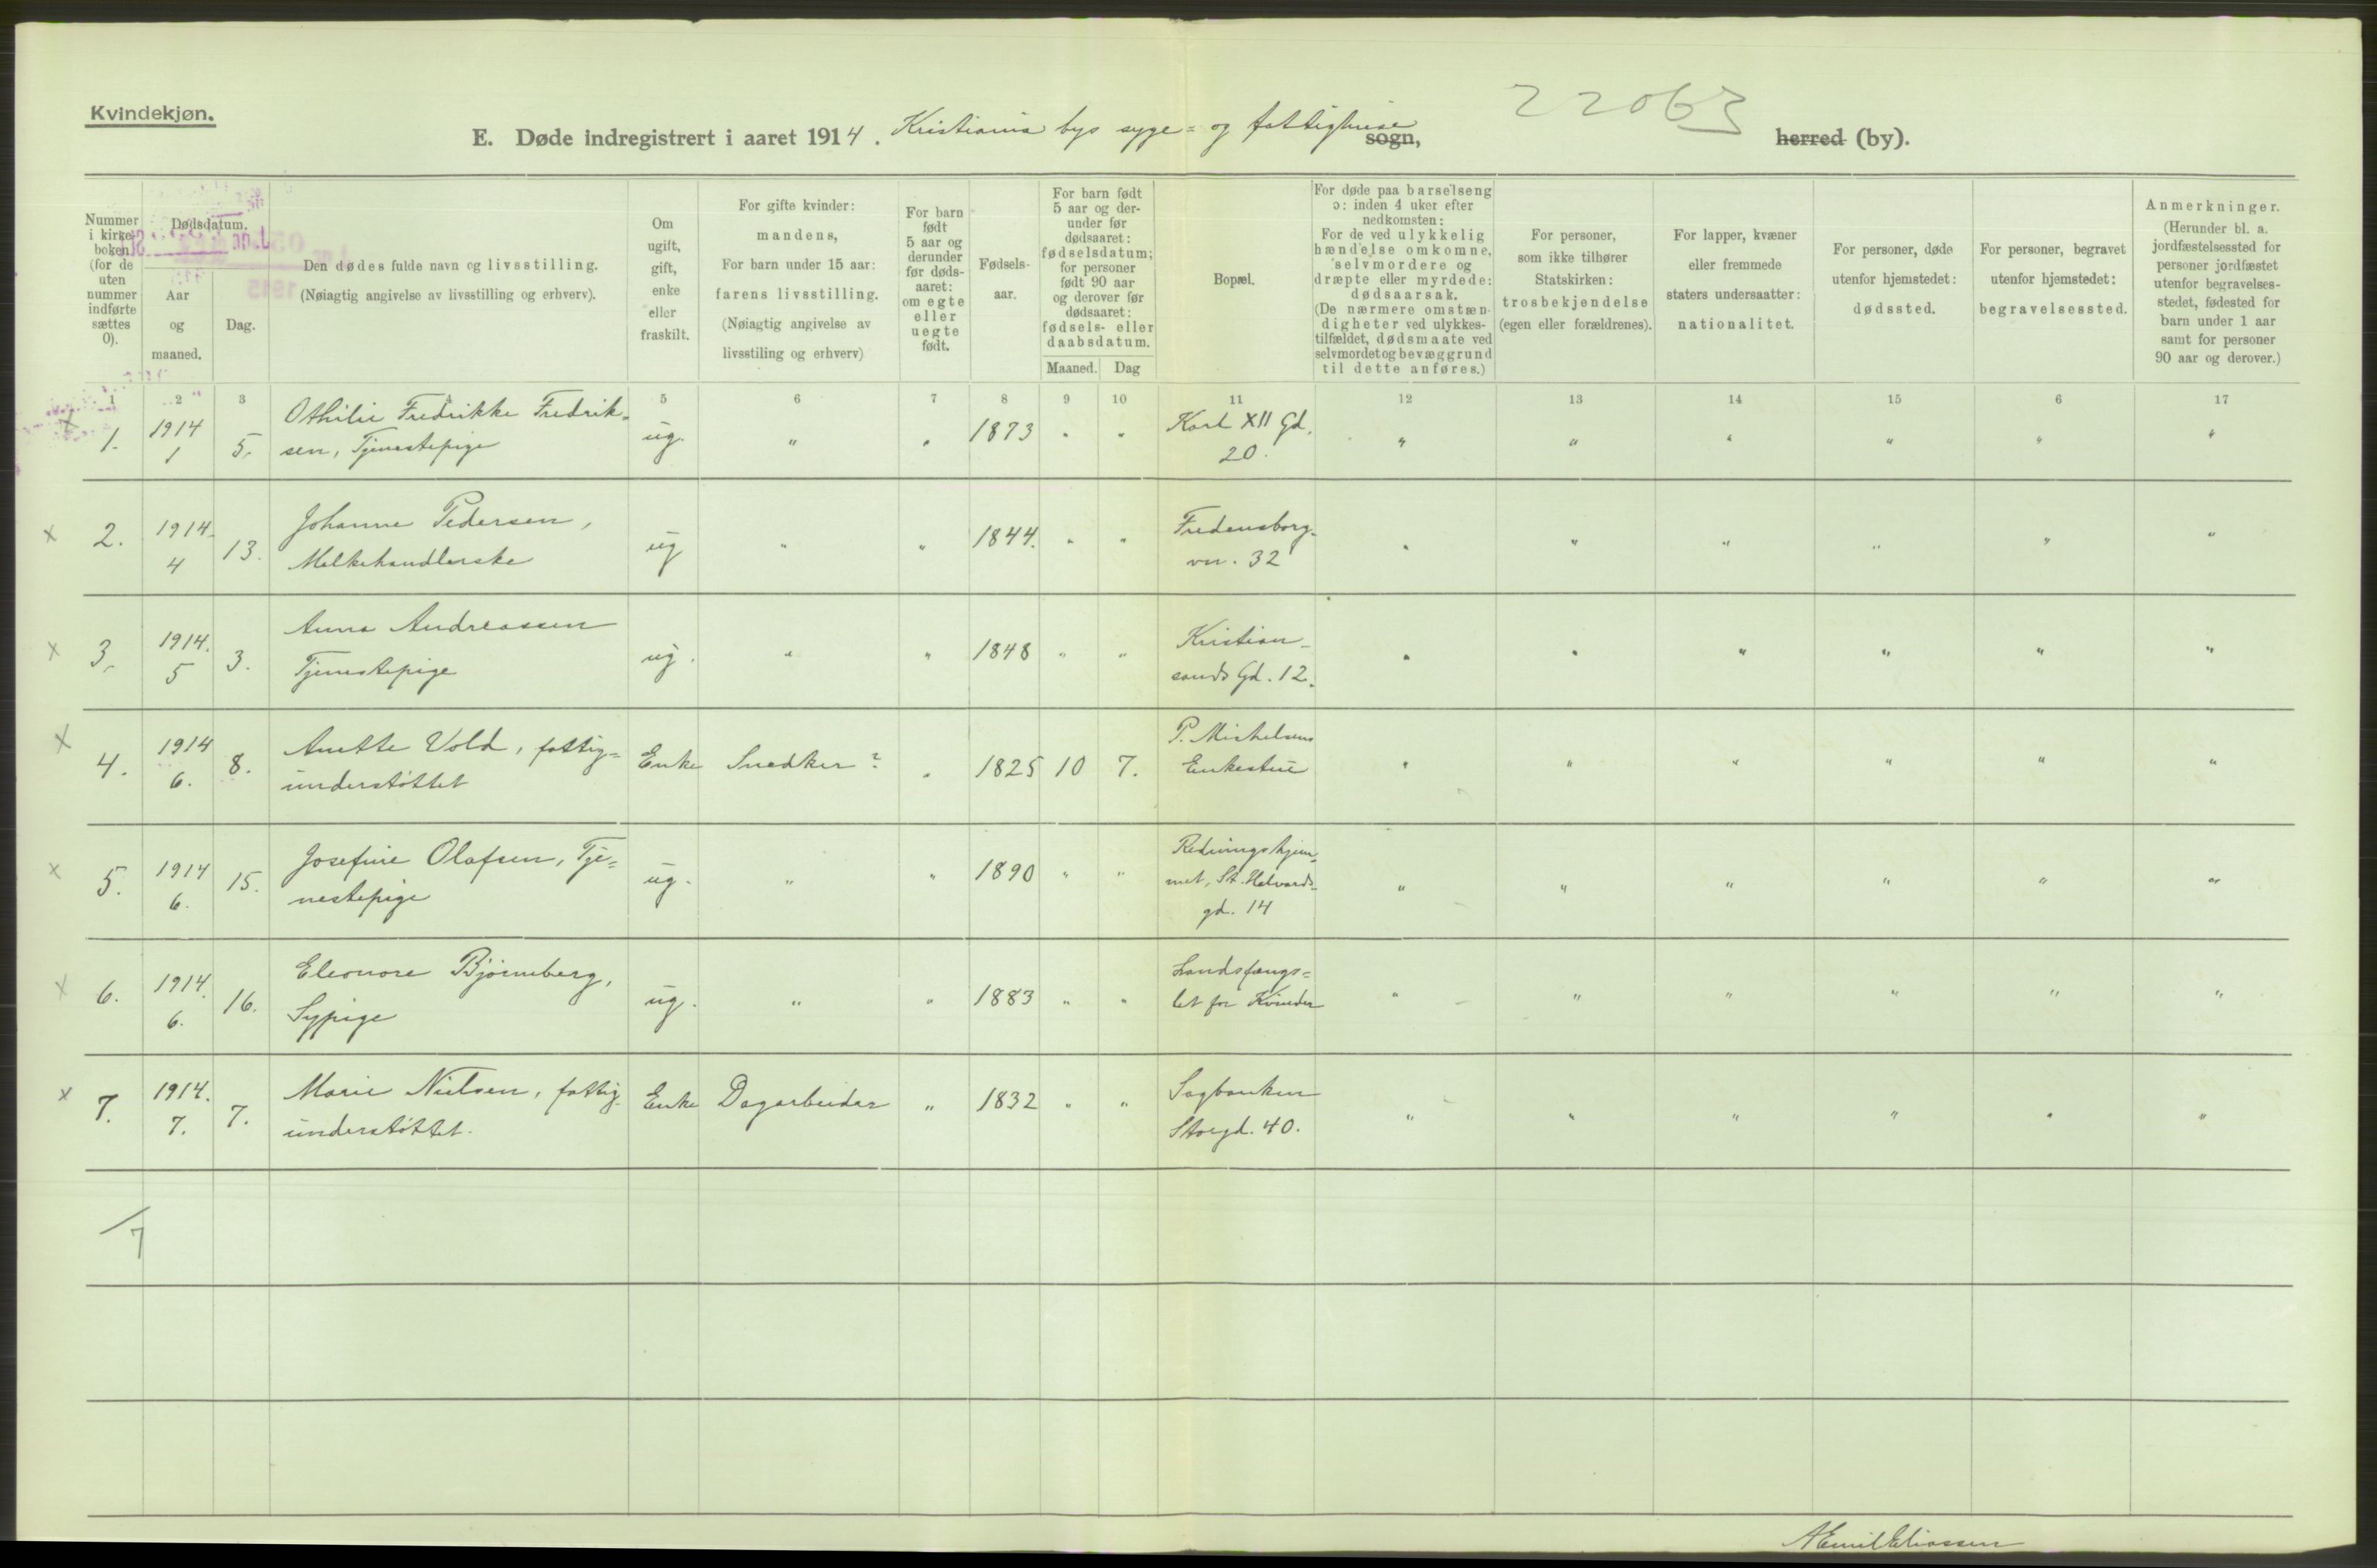 Kvindekjøn.
E. Døde indregistrert i aaret 1914. Kristiania bys syge= og fattighuse sogn, herred (by).
22063
Nummer i kirkeboken (for de uten nummer indførte sættes 0).
Dødsdatum.
Aar og maaned.
Dag.
Den dødes fulde navn og livsstilling.
(Nøiagtig angivelse av livsstilling og erhverv).
Om ugift, gift, enke eller fraskilt.
For gifte kvinder: mandens,
For barn under 15 aar: farens livsstilling.
(Nøiagtig angivelse av livsstiling og erhverv)
For barn født 5 aar og derunder før dødsaaret: om egte eller uegte født.
Fødselsaar.
For barn født 5 aar og derunder før dødsaaret: fødselsdatum; for personer født 90 aar og derover før dødsaaret: fødsels- eller daabsdatum.
Maaned. Dag
Bopæl.
For døde paa barselseng ɔ: inden 4 uker efter nedkomsten:
For de ved ulykkelig hændelse omkomne, selvmordere og dræpte eller myrdede: dødsaarsak.
(De nærmere omstændigheter ved ulykkestilfældet, dødsmaate ved selvmordet og bevæggrund til dette anføres.)
For personer, som ikke tilhører Statskirken: trosbekjendelse (egen eller forældrenes).
For lapper, kvæner eller fremmede staters undersaatter: nationalitet.
For personer, døde utenfor hjemstedet: dødssted.
For personer, begravet utenfor hjemstedet: begravelsessted.
Anmerkninger.
(Herunder bl. a. jordfæstelsessted for personer jordfæstet utenfor begravelsesstedet, fødested for barn under 1 aar samt for personer 90 aar og derover.)
1 2 3 5 6 7 8 9 10 11 12 13 14 15 6 17
x 1. 1914 1 5. Othilie Fredrikke Fredriksen, Tjenestepige ug. " " 1873 " " Karl XII Gd. 20. " " " " " "
x 2. 1914. 4 13. Johanne Pedersen, Melkehandlerske ug " " 1844. " " Fredensborgvn. 32 " " " " " "
x 3. 1914. 5 3. Anna Andreassen Tjenestepige ug. " " 1848 " " Kristiansands Gd. 12. " " " " " "
x 4. 1914 6. 8. Anette Vold, fattig=understøttet Enke Snedker ? " 1825 10 7. P. Michelsens Enkestue " " " " " "
x 5. 1914 6. 15. Josefine Olafsen, Tje=nestepige ug. " " 1890 " " Redningshjemmet, St. Halvardsgd. 14 " " " " " "
x 6. 1914. 6. 16. Eleonore Bjørneberg, Sypige ug. " " 1883 " " Landsfængs=let for Kvinder " " " " " "
x 7. 1914. 7. 7. Marie Nielsen, fattigunderstøttet. Enke Dagarbeider " 1832 " " Sagbanken Storgd. 40. " " " " " "
7
A Emil Eliassen